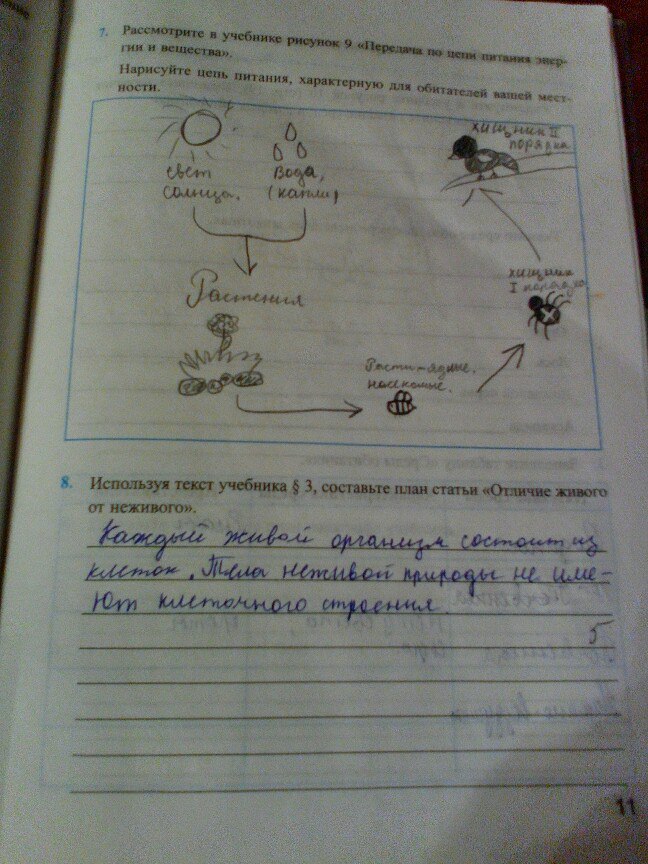 7. Рассмотрите в учебнике рисунок 9 «Передача по цепи питания энер-
гии и вещества».
Нарисуйте цепь питания, характерную для обитателей вашей мест-
ности.
свет
солнца.
вода,
(капли)
хищник II
порядка
Растения
хищник
I порядка
Расти-ядные,
насекомые.
8. Используя текст учебника § 3, составьте план статьи «Отличие живого
от неживого».
Каждый живой организм состоит из
клеток. Тела неживой природы не име-
ют клеточного строения
5
11